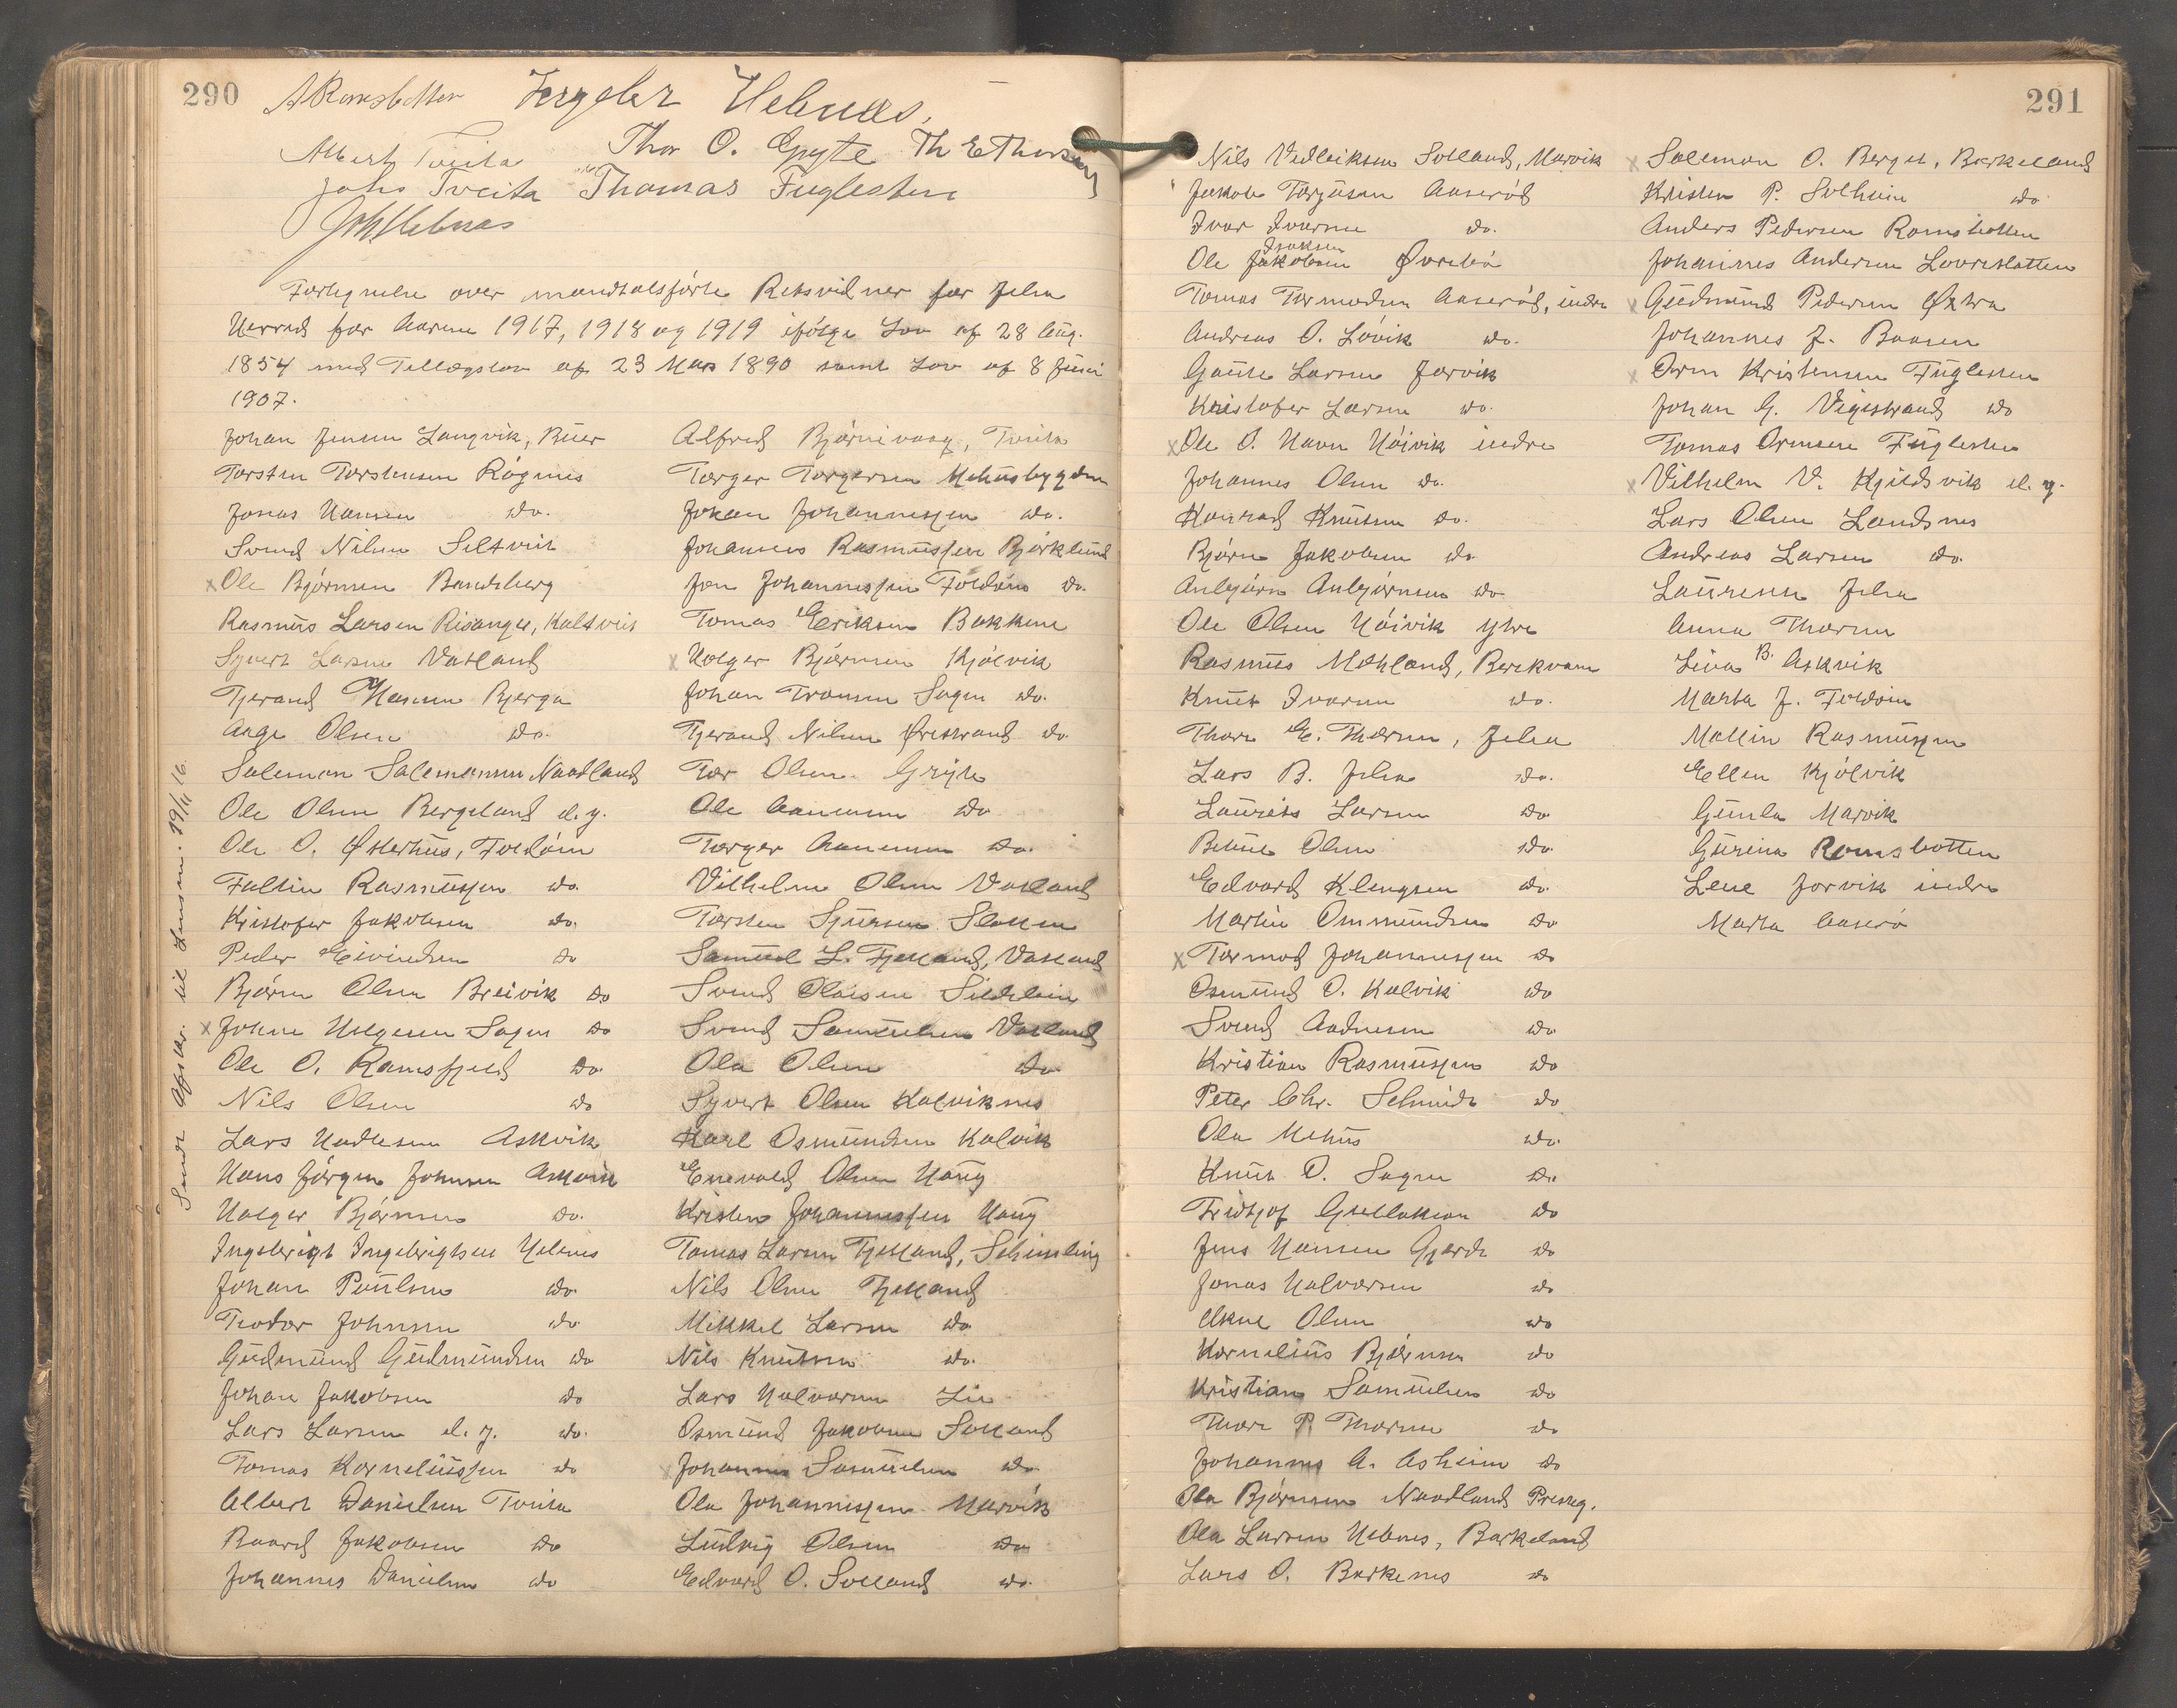 290
A Ramsbotten Torgeir Hebnes,
Albert Tveita Thor O. Gryte Th E Thorsen
Johs Tveita Thomas Fuglesteen
Joh Hebnes
Fortegnelse over mandtalsførte Retsvidner for Jelsa
Herred for Aarene 1917, 1918 og 1919 ifølge Lov af 28 Aug.
1854 med Tillægslov af 23 Mars 1890 samt Lov af 8 Juni
1907.
Johan Jensen Langvik, Buer
Torsten Torstensen Røgnes
Jonas Hansen do.
Svend Nilsen Seltveit
x Ole Bjørnsen Bandsberg
Rasmus Larsen Risanger, Kaltveit
Syvert Larsen Vatland
Tjerand Hansen Bjerga
Aage Olsen do.
Salemon Salemonsen Naadland
Ole Olsen Bergeland d.y.
Ole O. Østerhus, Foldøen
Fallin Rasmussen do.
Kristofer Jakobsen do.
Peder Eivindsen do
Bjørn Olsen Breivik do
x Johne Holgersen Sagen do
Ole O. Ramsfjeld do.
Nils Olsen do
Lars Hadlesen Askvik
Hans Jørgen Johnsen Askvik
Holger Bjørnsen do.
Ingebrigt Ingebrigtsen Hebnes
Johan Paulsen do.
Teodor Johnsen do
Gudmund Gudmundsen do
Johan Jakobsen do
Lars Larsen d.y. do.
Tomas Korneliussen do
Albert Danielsen Tveita
Baard Jakobsen do
Johannes Danielsen do
Sendt Afskr. til Lensm. 19/11 16.
Alfred Bjørnevaag, Tveita
Torger Torgersen Mehusbygden
Johan Johannessen do.
Johannes Rasmussen Bjørklund
Jon Johannessen Foldøen do.
Tomas Eriksen Bakken
x Holger Bjørnsen Kjølvik
Johan Tronsen Sagen do.
Tjerand Nilsen Ørestrand do
Tor Olsen Gryte
Ole Aanensen do
Torger Aanensen do.
Vilhelm Olsen Vatland
Torsten Sjursen Slatten
Samuel L. Tjelland, Vatland
Svend Olaisen
Svend Samuelsen Vatland
Ola Olsen do
Syvert Olsen Kalviknes
Karl Osmundsen Kalvik
Enevald Olsen Haug
Kristen Johannessen Haug
Tomas Larsen Tjelland, Schimling
Nils Olsen Tjelland
Mikkel Larsen do
Nils Knutsen do.
Lars Halvorsen Lie
Osmund Jakobsen Solland
x Johannes Samuelsen do
Ola Johannessen Marvik
Ludvig Olsen do
Edvard O. Solland do.
291
Nils Vedleiksen Solland, Marvik
Jakob Torjusen Aaserød
Ivar Ivarsen do.
Ole Isaksen Jakobsen Øvrebø
Tomas Tormodsen Aaserød, indre
Andreas O. Løvik do.
Gaute Larsen Jørvik
Kristofer Larsen do.
x Ole O. Havn Høivik indre
Johannes Olsen do.
Konrad Knutsen do.
Bjørn Jakobsen do
Anbjørn Anbjørnsen do
Ole Olsen Høivik ytre
Rasmus Mæhland, Berkvam
Knut Ivarsen do.
Thore E. Thorsen, Jelsa
Lars B. Jelsa do.
Laurits Larsen do
Betuel Olsen do
Edvard Klengsen do.
Martin Ommundsen do
x Tormod Johannessen do
Osmund O. Kalvik do
Svend Aadnesen do.
Kristian Rasmussen do
Peter Chr. Schmidt do
Ola Mehus do.
Knut O. Sagen do
Fridtjof Gullaksen do
Jens Hansen Gjerde do
Jonas Halvorsen do
Elkne Olsen do
Kornelius Bjørnsen do
Kristian Samuelsen do
Thore P. Thorsen do
Johannes A. Asheim do
Ola Bjørnsen Naadland Presteg.
Ola Larsen Hebnes, Barkeland
Lars O. Barkenes do
x Salemon O. Berget, Barkeland
Kristen P. Solheim do
Anders Pedersen Ramsbotten
Johannes Andersen Lovraslotten
x Gudmund Pedersen Øxtra
Johannes J. Baasen
x Orm Kristensen Fuglesten
Johan G. Vigestrand do
Tomas Ormsen Fuglesten
x Vilhelm V. Kjildsvik d.y.
Lars Olsen Landsnes
Andreas Larsen do.
Laurense Jelsa
Anna Thorsen
Lina B. Askvik
Marta J. Foldøen
Mallin Rasmussen
Ellen Kjølvik
Gunla Marvik
Gurina Ramsbotten
Lene Jørvik indre
Marta Aaserø